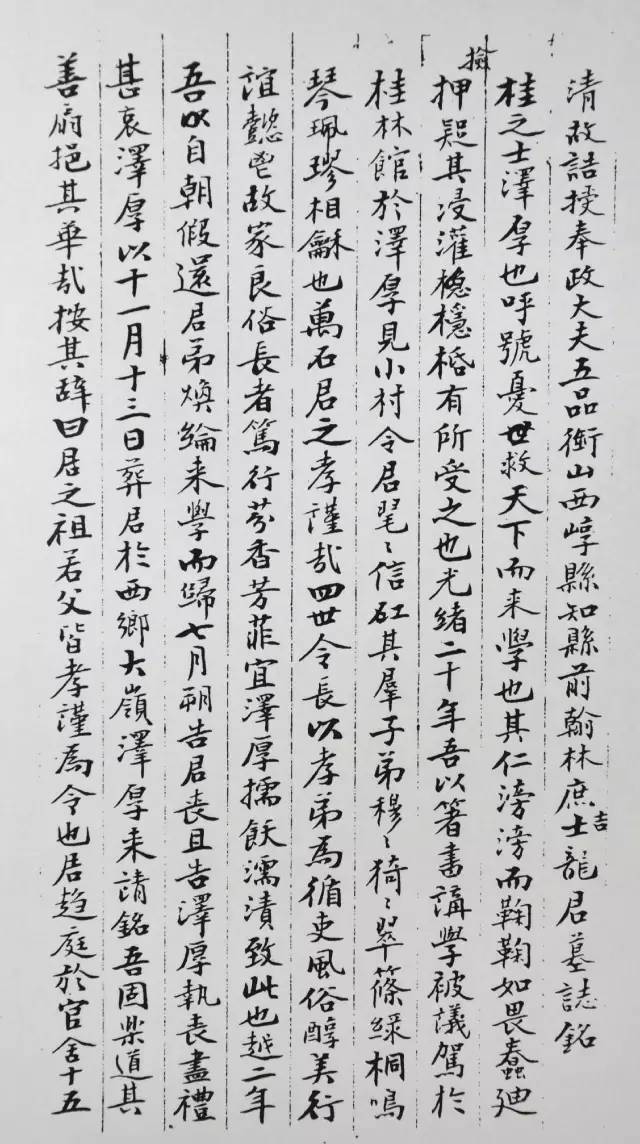 清故誥授奉政大夫五品銜山西崞縣知縣前翰林庶吉士龍君墓誌銘
桂之士澤厚也呼號憂世救天下而来學也其仁滂滂而鞠鞠如畏蠢廸
撿押疑其浸灌檼栝有所受之也光緒二十年吾以箸書講學被議駕於
桂林館於澤厚見小村令君毣〻信矼其羣子弟穆〻猗〻翠篠緑桐鳴
琴珮璆相龢也萬石君之孝謹哉四世令長以孝弟為循吏風俗醇美行
誼懿鬯故家良俗長者篤行芬香芳菲宜澤厚擩飫濡漬致此也越二年
吾以自朝假還君弟煥綸来學而歸七月朔告君喪且告澤厚執喪盡禮
甚哀澤厚以十一月十三日葬君於西鄉大嶺澤厚来請銘吾固樂道其
善扇挹其華哉按其辭曰君之祖若父皆孝謹為令也君趋庭於官舍十五